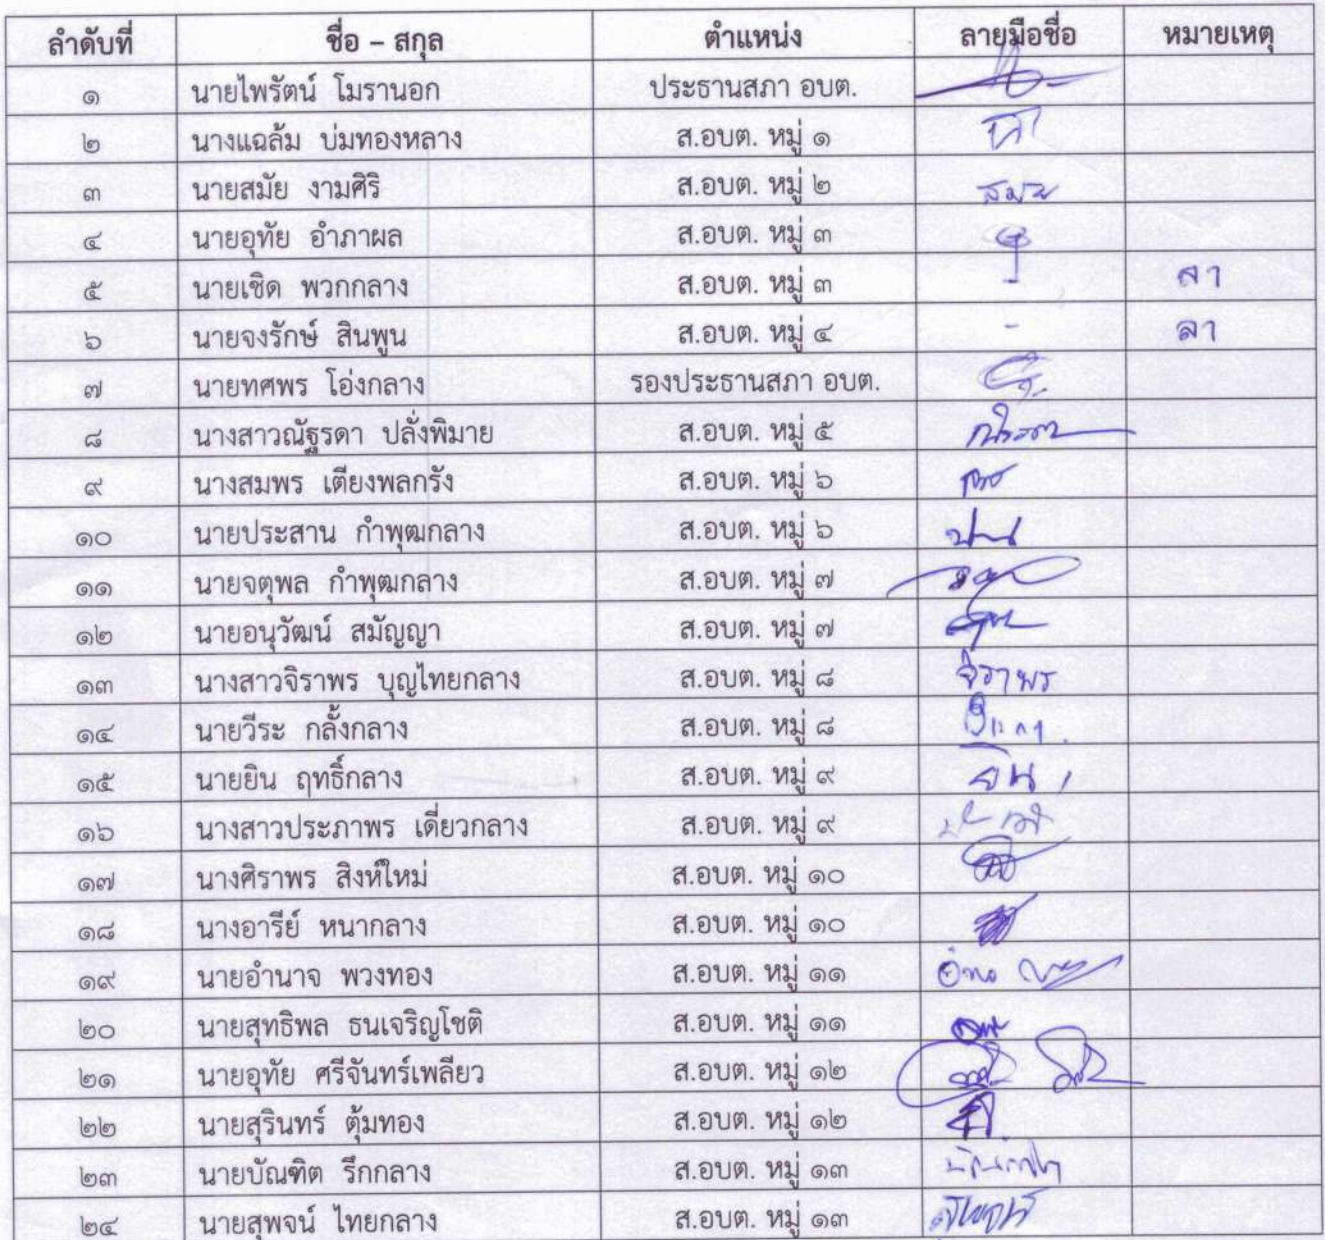 ลำดับที่ ชื่อ – สกุล ตำแหน่ง ลายมือชื่อ หมายเหตุ
๑ นายไพรัตน์ โมรานอก ประธานสภา อบต.
๒ นางแฉล้ม บ่มทองหลาง ส.อบต. หมู่ ๑
๓ นายสมัย งามศิริ ส.อบต. หมู่ ๒ สมัย
๔ นายอุทัย อำภาผล ส.อบต. หมู่ ๓
๕ นายเชิด พวกกลาง ส.อบต. หมู่ ๓ - ลา
๖ นายจงรักษ์ สินพูน ส.อบต. หมู่ ๔ - ลา
๗ นายทศพร โอ่งกลาง รองประธานสภา อบต.
๘ นางสาวณัฐรดา ปลั่งพิมาย ส.อบต. หมู่ ๕
๙ นางสมพร เตียงพลกรัง ส.อบต. หมู่ ๖
๑๐ นายประสาน กำพุฒกลาง ส.อบต. หมู่ ๖
๑๑ นายจตุพล กำพุฒกลาง ส.อบต. หมู่ ๗
๑๒ นายอนุวัฒน์ สมัญญา ส.อบต. หมู่ ๗
๑๓ นางสาวจิราพร บุญไทยกลาง ส.อบต. หมู่ ๘ จิราพร
๑๔ นายวีระ กลั้งกลาง ส.อบต. หมู่ ๘
๑๕ นายยิน ฤทธิ์กลาง ส.อบต. หมู่ ๙ ยิน
๑๖ นางสาวประภาพร เดี่ยวกลาง ส.อบต. หมู่ ๙
๑๗ นางศิราพร สิงห์ใหม่ ส.อบต. หมู่ ๑๐
๑๘ นางอารีย์ หนากลาง ส.อบต. หมู่ ๑๐
๑๙ นายอำนาจ พวงทอง ส.อบต. หมู่ ๑๑
๒๐ นายสุทธิพล ธนเจริญโชติ ส.อบต. หมู่ ๑๑
๒๑ นายอุทัย ศรีจันทร์เพลียว ส.อบต. หมู่ ๑๒
๒๒ นายสุรินทร์ ตุ้มทอง ส.อบต. หมู่ ๑๒
๒๓ นายบัณฑิต รึกกลาง ส.อบต. หมู่ ๑๓
๒๔ นายสุพจน์ ไทยกลาง ส.อบต. หมู่ ๑๓